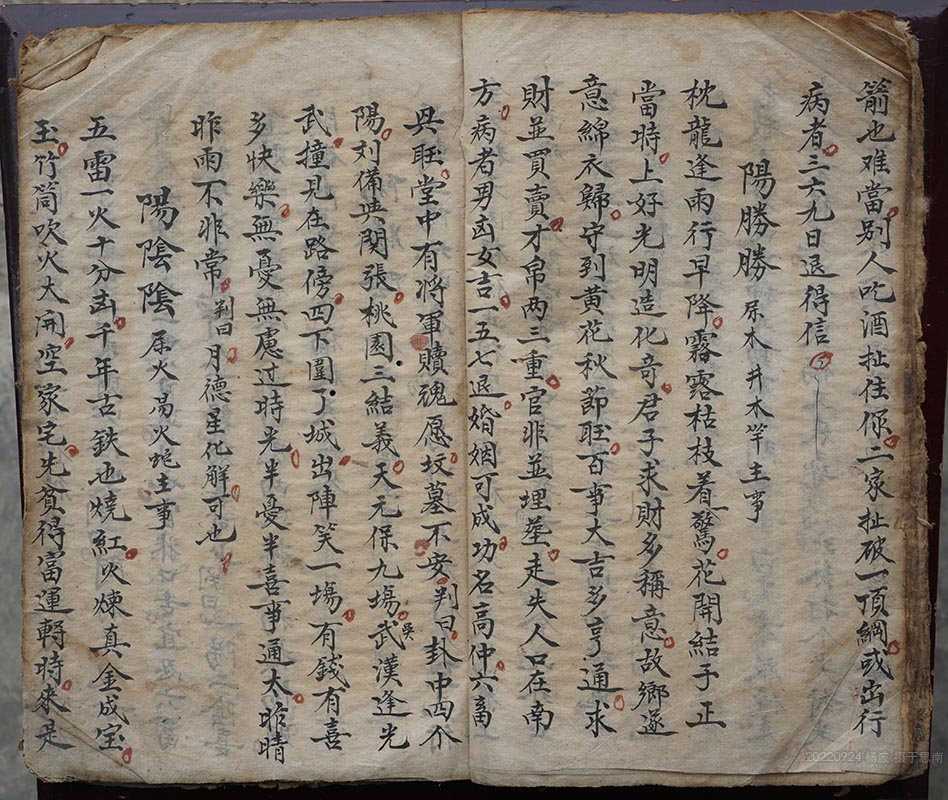 箭也难當別人吃酒扯住你二家扯破一頂綱或出行
病者三六九日退得信
陽勝勝 屬木 井木竿主事
枕龍逢雨行早降霧露枯枝着驚花開結子正
當時上好光明造化奇君子求財多稱意故鄉遂
意綿衣歸守到黄花秋節旺百事大吉多亨通求
財並買賣才帛两三重官非並埋塟走失人口在南
方病者男凶女吉一五七退婚姻可成功名高仲六畜
興旺堂中有將軍贖魂愿坟墓不安判曰卦中四个
陽刘備與関張桃園三結義天元保九塲武漢逢光
吳
武撞見在路傍四下圍了城出陣笑一塲有錢有喜
多快樂無憂無慮过時光半憂半喜事通太昨晴
昨雨不非常判曰月德星化解可也
陽陰陰 屬火 昜火蛇主事
五雷一火十分凶千年古鉄也燒紅火煉真金成宝
玉竹筒吹火大開空家宅先貧得富運轉時來是
20220924 杨波 摄于思南